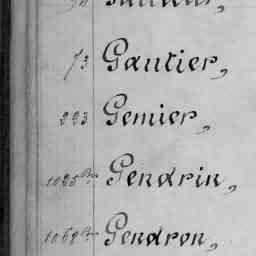 73 Gautier,
223 Gemier,
1025 Bis Gendrin,
1068 Bis Gendron,